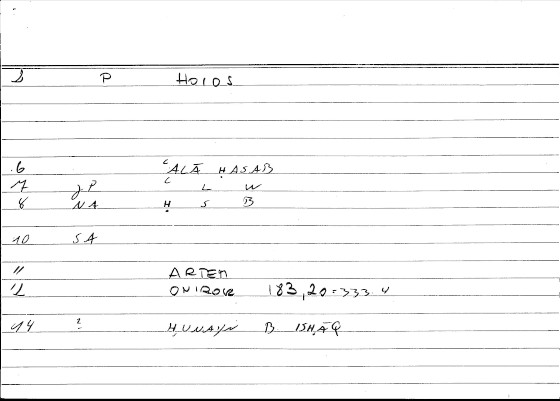 S P HOIOS
6 ʿALĀ ḤASAB
7 JP ʿ L W
8 NA Ḥ S B
10 SA
11 ARTEM
12 ONIROCR 183,20 = 333 4
14 ? ḤUNAYN B ISḤĀQ